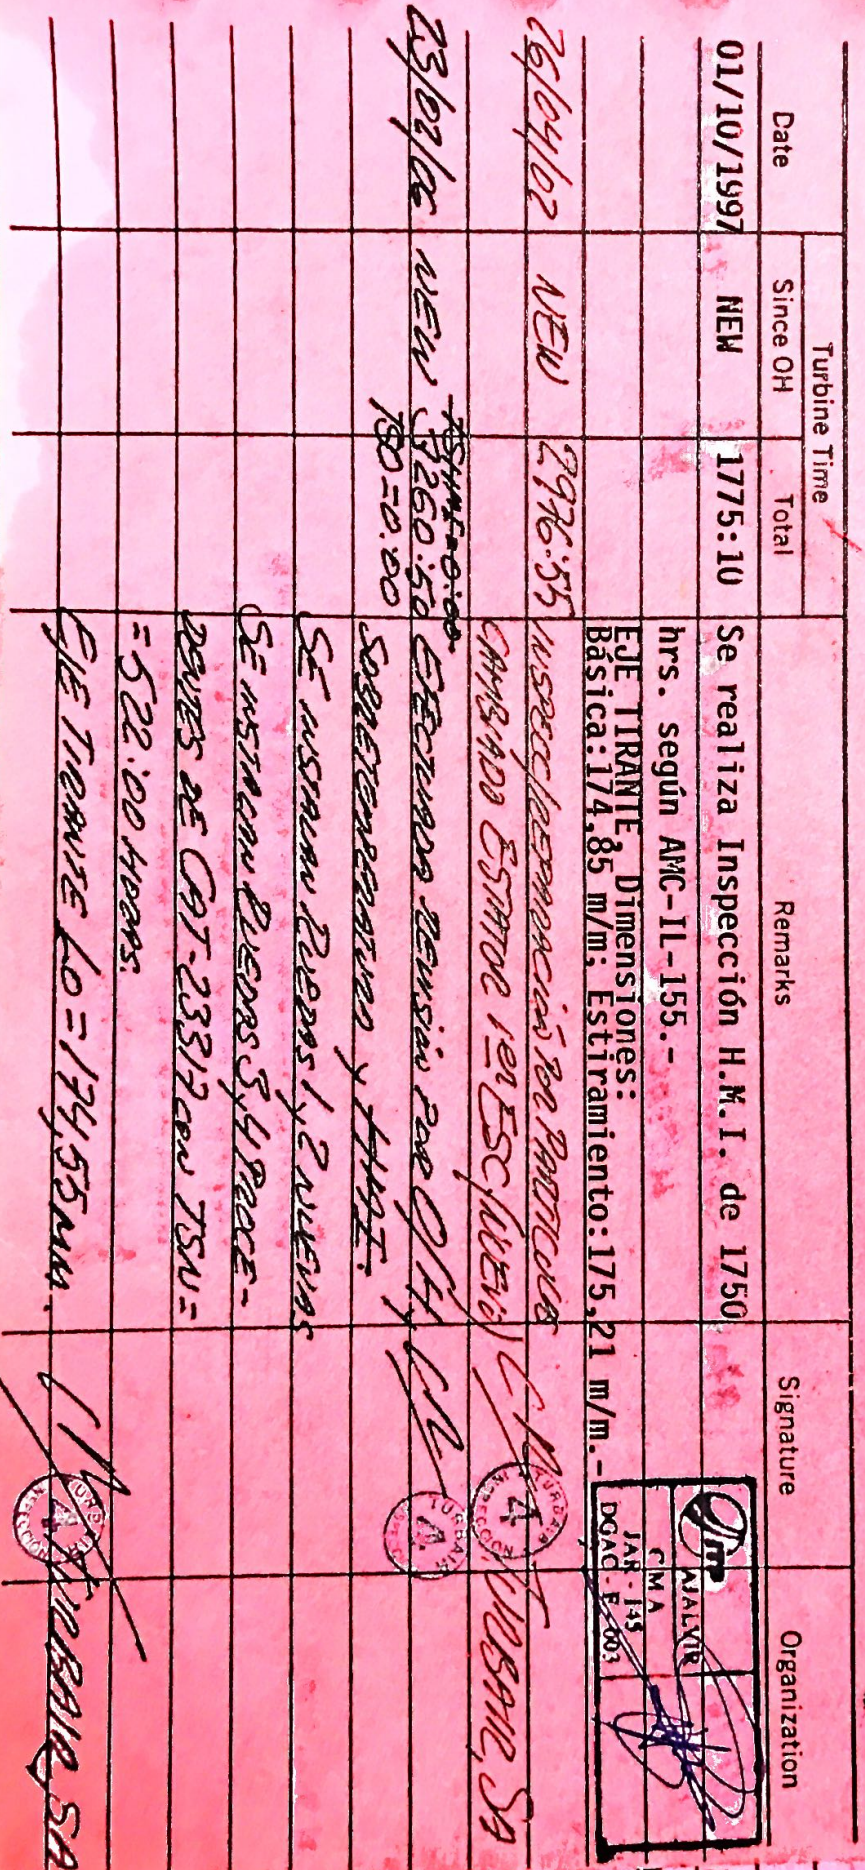 Date
Turbine Time
Since OH
Total
Remarks
Signature
Organization
01/10/1997 NEW 1775:10 Se realiza Inspección H.M.I. de 1750
hrs. según AMC-IL-155.-
EJE TIRANTE, Dimensiones:
Básica:174,85 m/m; Estiramiento:175,21 m/m.-
ITP
AJALVIR
CMA
JAR-145
DGAC-E-003
26/04/02 NEW 2976:55 POR PARTICULAS
CAMBIADO ESTATOR 1er ESC (NUEVO)
TURBAIR
TURBAIR, SA
TSHMI=0:00
23/02/06 NEW 3260:50 EFECTUADA REVISIÓN POR O/H,
TSO=0:00 SOBRETEMPERATURA y HMI.
TURBAIR
SE INSTALAN RUEDAS 1, 2 NUEVAS
SE INSTALAN RUEDAS 3, 4 PROCE-
DENTES DE CAT-23317 CON TSN=
=522:00 HORAS.
EJE TIRANTE Lo=174,55 MM.
TURBAIR
TURBAIR, SA